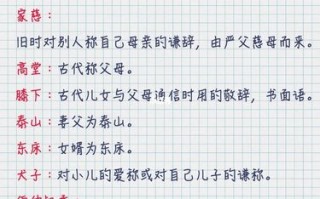 家慈：
旧时对别人称自己母亲的谦辞，由严父慈母而来。
高堂：古代称父母。
膝下：古代儿女与父母通信时用的敬辞，书面语。
泰山：妻父为泰山。
东床：女婿为东床。
犬子：对小儿的爱称或对自己儿子的谦称。